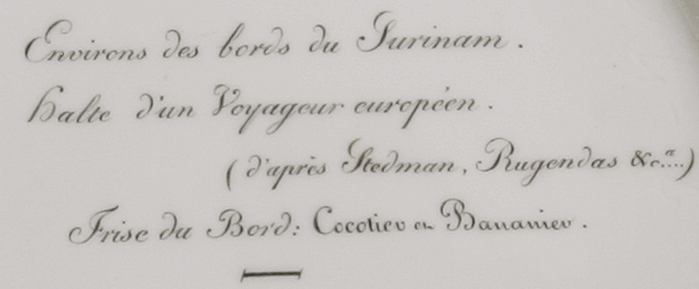 Environs des bords du Surinam.
Halte d'un Voyageur européen.
(d'après Stedman, Rugendas &c.a....)
Frise du Bord: Cocotier et Bananier.